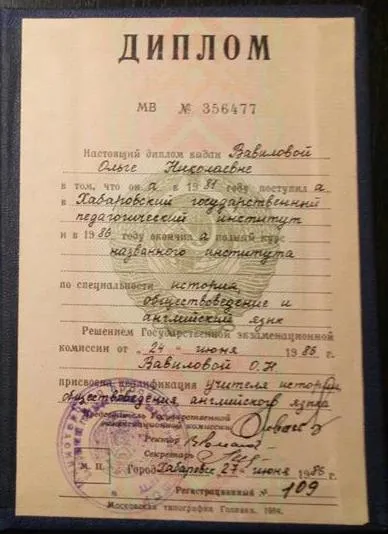 ДИПЛОМ
МВ № 356477
Настоящий диплом выдан Вавиловой
Ольге Николаевне
в том, что он а в 1981 году поступил а
в Хабаровский государственный
педагогический институт
и в 1986 году окончил а полный курс
названного института
по специальности история,
обществоведение и
английский язык
Решением Государственной экзаменационной
комиссии от "24" июня 1986 г.
Вавиловой О.Н
присвоена квалификация учителя истории
обществоведения английского языка
Председатель Государственной
экзаменационной комиссии
Ректор
Секретарь
М. П.
Город Хабаровск 27 июня 1986
Регистрационный № 109
Московская типография Гознака. 1984.